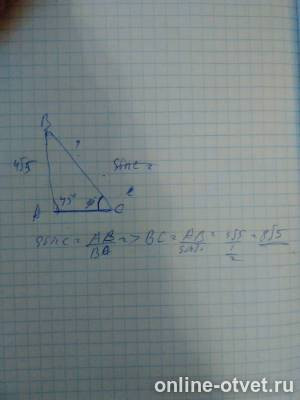 B
4√5
?
sin c =
A 45° C
sin c = AB/BA => BC = AB/sin c = 4√5/(1/2) = 8√5
online-otvet.ru